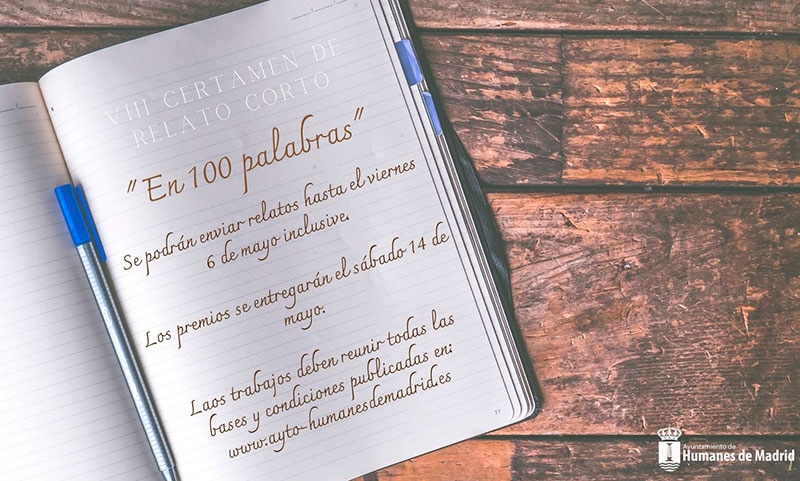 VIII CERTAMEN DE
RELATO CORTO
"En 100 palabras"
Se podrán enviar relatos hasta el viernes
6 de mayo inclusive.
Los premios se entregarán el sábado 14 de
mayo.
Laos trabajos deben reunir todas las
bases y condiciones publicadas en:
www.ayto-humanesdemadrid.es
Ayuntamiento de
Humanes de Madrid